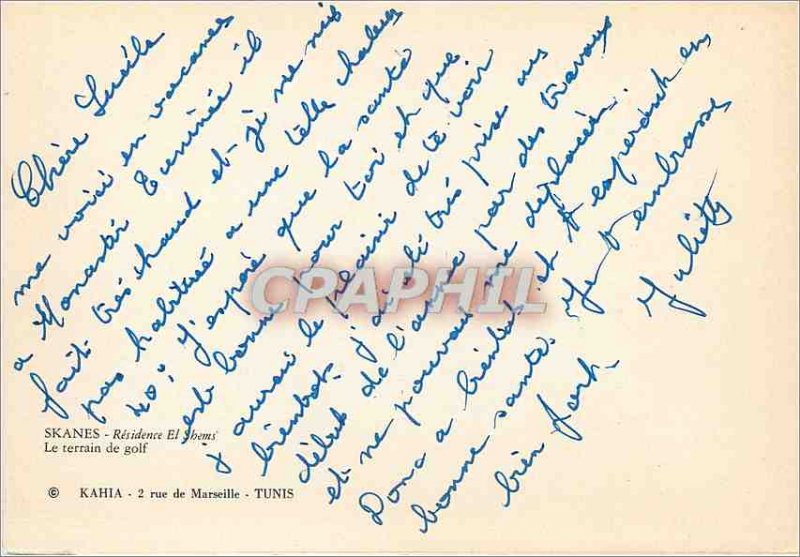 Chère Lucile
me voici en vacances
a Monastir Tunisie il
fait très chaud et je ne suis
pas habitué a une telle chaleur
40° J'espère que la santé
est bonne pour toi et que
j'aurai le plaisir de te voir
bientot. J'ai été très prise au
début de l'année par des travaux
et ne pouvais me déplacer.
Donc a bientot et t esperant en
bonne santé. Je t'embrasse
bien fort. Juliette
CPARPHIL
SKANES - Résidence El Shems
Le terrain de golf
© KAHIA - 2 rue de Marseille - TUNIS